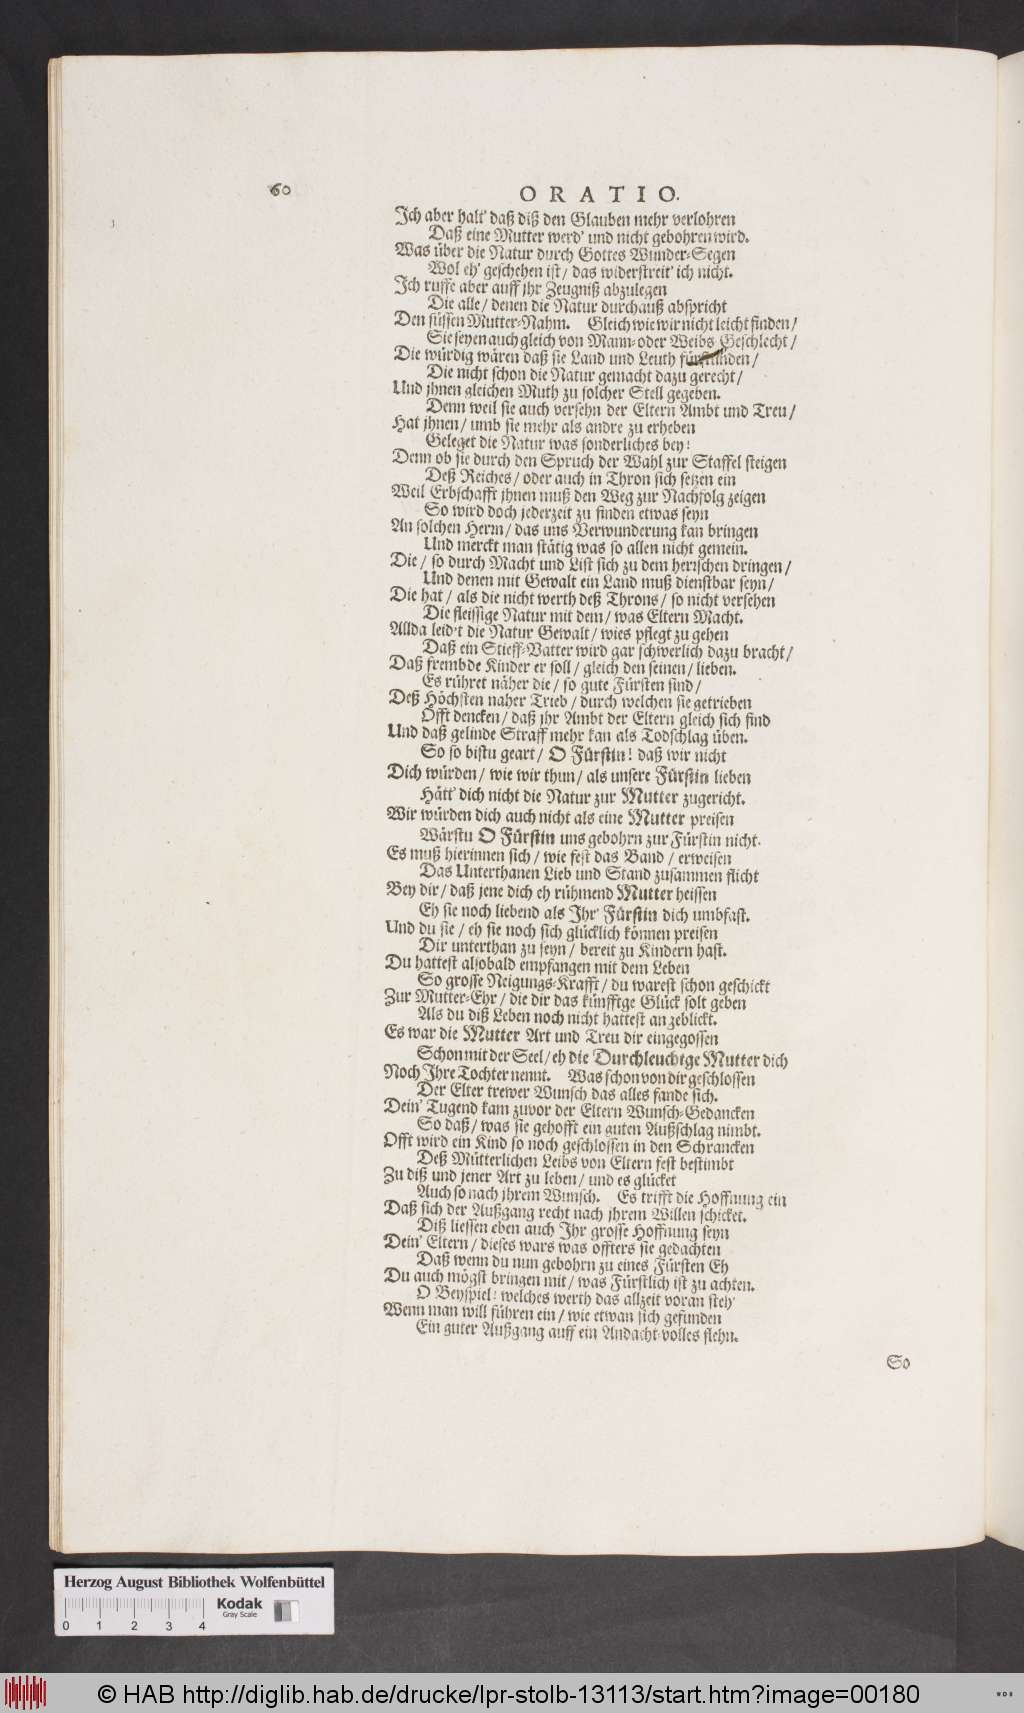 60
ORATIO.
Ich aber halt' daß diß den Glauben mehr verlohren
Daß eine Mutter werd' und nicht gebohren wird.
Was über die Natur durch Gottes Wunder-Segen
Wol eh' geschehen ist / das widerstreit' ich nicht.
Ich ruffe aber auff jhr Zeugniß abzulegen
Die alle / denen die Natur durchauß abspricht
Den süssen Mutter-Nahm. Gleich wie wir nicht leicht finden /
Sie seyen auch gleich von Mann- oder Weibs Geschlecht /
Die würdig wären daß sie Land und Leuth fürstünden /
Die nicht schon die Natur gemacht dazu gerecht /
Und jhnen gleichen Muth zu solcher Stell gegeben.
Denn weil sie auch versehn der Eltern Ambt und Treu /
Hat jhnen / umb sie mehr als andre zu erheben
Geleget die Natur was sonderliches bey:
Denn ob sie durch den Spruch der Wahl zur Staffel steigen
Deß Reiches / oder auch in Thron sich setzen ein
Weil Erbschafft jhnen muß den Weg zur Nachfolg zeigen
So wird doch jederzeit zu finden etwas seyn
An solchen Herrn / das uns Verwunderung kan bringen
Und merckt man stätig was so allen nicht gemein.
Die / so durch Macht und List sich zu dem herrschen dringen /
Und denen mit Gewalt ein Land muß dienstbar seyn /
Die hat / als die nicht werth deß Throns / so nicht versehen
Die fleissige Natur mit dem / was Eltern Macht.
Allda leid't die Natur Gewalt / wies pflegt zu gehen
Daß ein Stieff-Vatter wird gar schwerlich dazu bracht /
Daß frembde Kinder er soll / gleich den seinen / lieben.
Es rühret näher die / so gute Fürsten sind /
Deß Höchsten naher Trieb / durch welchen sie getrieben
Offt dencken / daß jhr Ambt der Eltern gleich sich find
Und daß gelinde Straff mehr kan als Todschlag üben.
So so bistu geart / O Fürstin! daß wir nicht
Dich würden / wie wir thun / als unsere Fürstin lieben
Hätt' dich nicht die Natur zur Mutter zugericht.
Wir würden dich auch nicht als eine Mutter preisen
Wärstu O Fürstin uns gebohrn zur Fürstin nicht.
Es muß hierinnen sich / wie fest das Band / erweisen
Das Unterthanen Lieb und Stand zusammen flicht
Bey dir / daß jene dich eh rühmend Mutter heissen
Eh sie noch liebend als Ihr' Fürstin dich umbfast.
Und du sie / eh sie noch sich glücklich können preisen
Dir unterthan zu seyn / bereit zu Kindern hast.
Du hattest alsobald empfangen mit dem Leben
So grosse Neigungs-Krafft / du warest schon geschickt
Zur Mutter-Ehr / die dir das künfftge Glück solt geben
Als du diß Leben noch nicht hattest angeblickt.
Es war die Mutter Art und Treu dir eingegossen
Schon mit der Seel / eh die Durchleuchtge Mutter dich
Noch Ihre Tochter nennt. Was schon von dir geschlossen
Der Elter trewer Wunsch das alles fande sich.
Dein' Tugend kam zuvor der Eltern Wunsch-Gedancken
So daß / was sie gehofft ein guten Außschlag nimbt.
Offt wird ein Kind so noch geschlossen in den Schrancken
Deß Mütterlichen Leibs von Eltern fest bestimbt
Zu diß und jener Art zu leben / und es glücket
Auch so nach jhrem Wunsch. Es trifft die Hoffnung ein
Daß sich der Außgang recht nach jhrem Willen schicket.
Diß liessen eben auch Ihr grosse Hoffnung seyn
Dein' Eltern / dieses wars was offters sie gedachten
Daß wenn du nun gebohrn zu eines Fürsten Eh
Du auch mögst bringen mit / was Fürstlich ist zu achten.
O Beyspiel: welches werth das allzeit voran steh'
Wenn man will führen ein / wie etwan sich gefunden
Ein guter Außgang auff ein Andacht-volles flehn.
So
Herzog August Bibliothek Wolfenbüttel
0 1 2 3 4
Kodak
Gray Scale
© HAB http://diglib.hab.de/drucke/lpr-stolb-13113/start.htm?image=00180